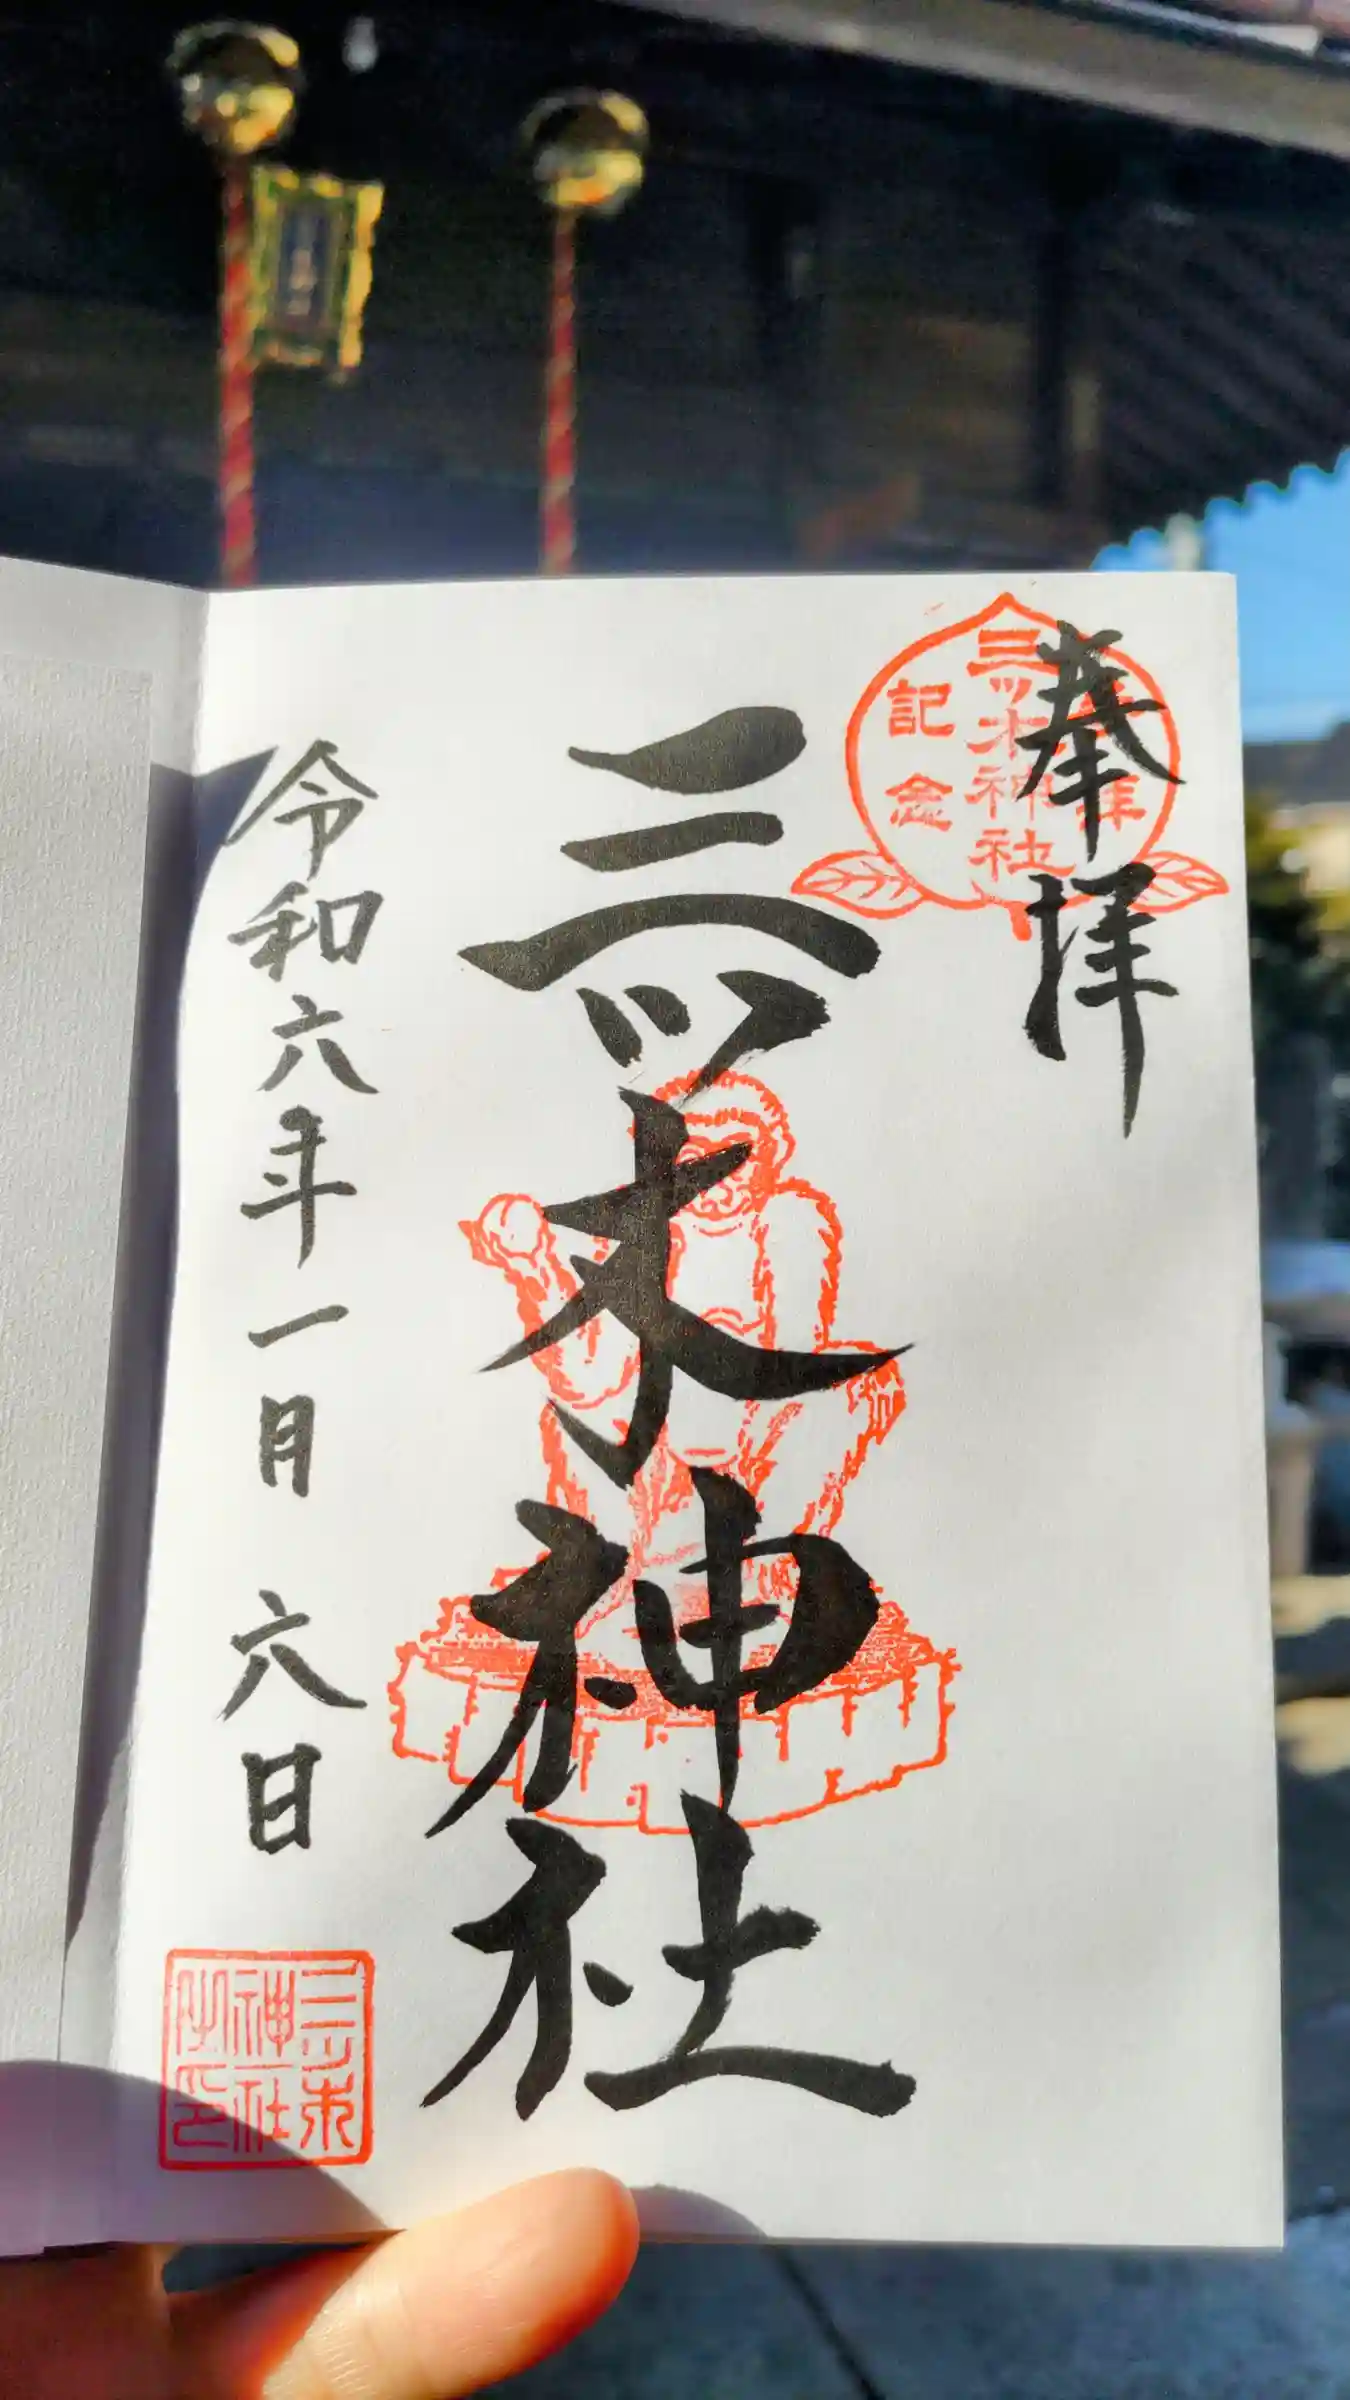 奉拝
三ツ木神社
記念
三ツ木神社
令和六年一月六日
三ツ木
神社